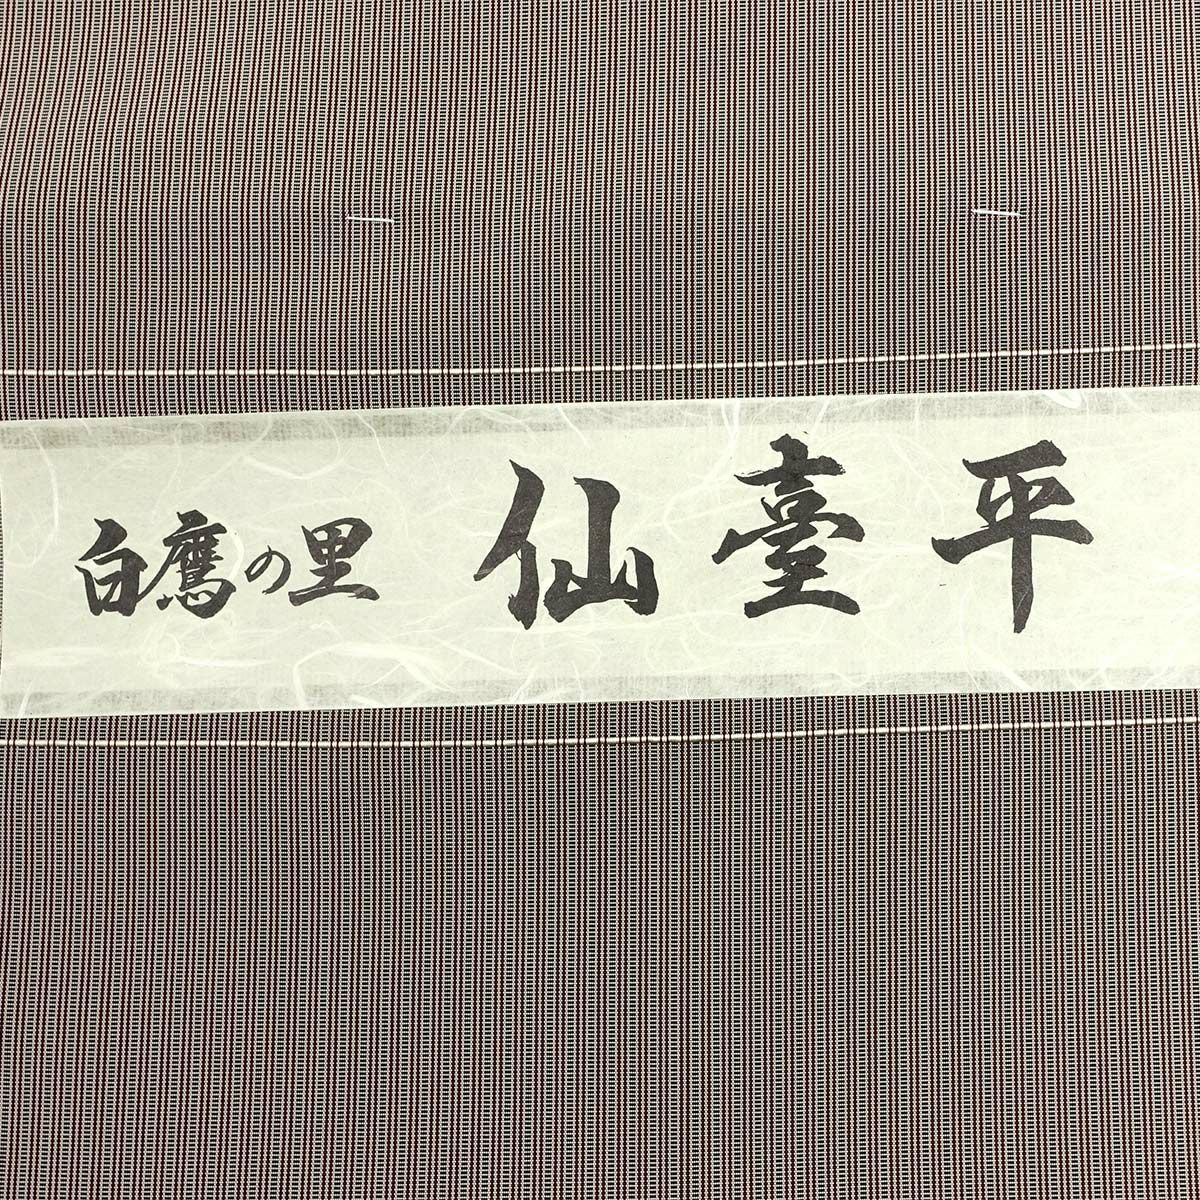 白鷹の里 仙臺平